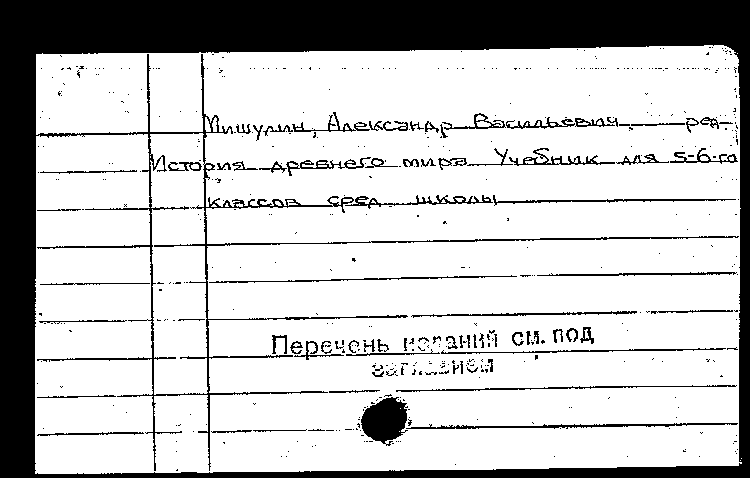 Мишулин, Александр Васильевич, ред.
История древнего мира Учебник для 5-6-го
классов сред. школы
Перечень изданий см. под
заглавием